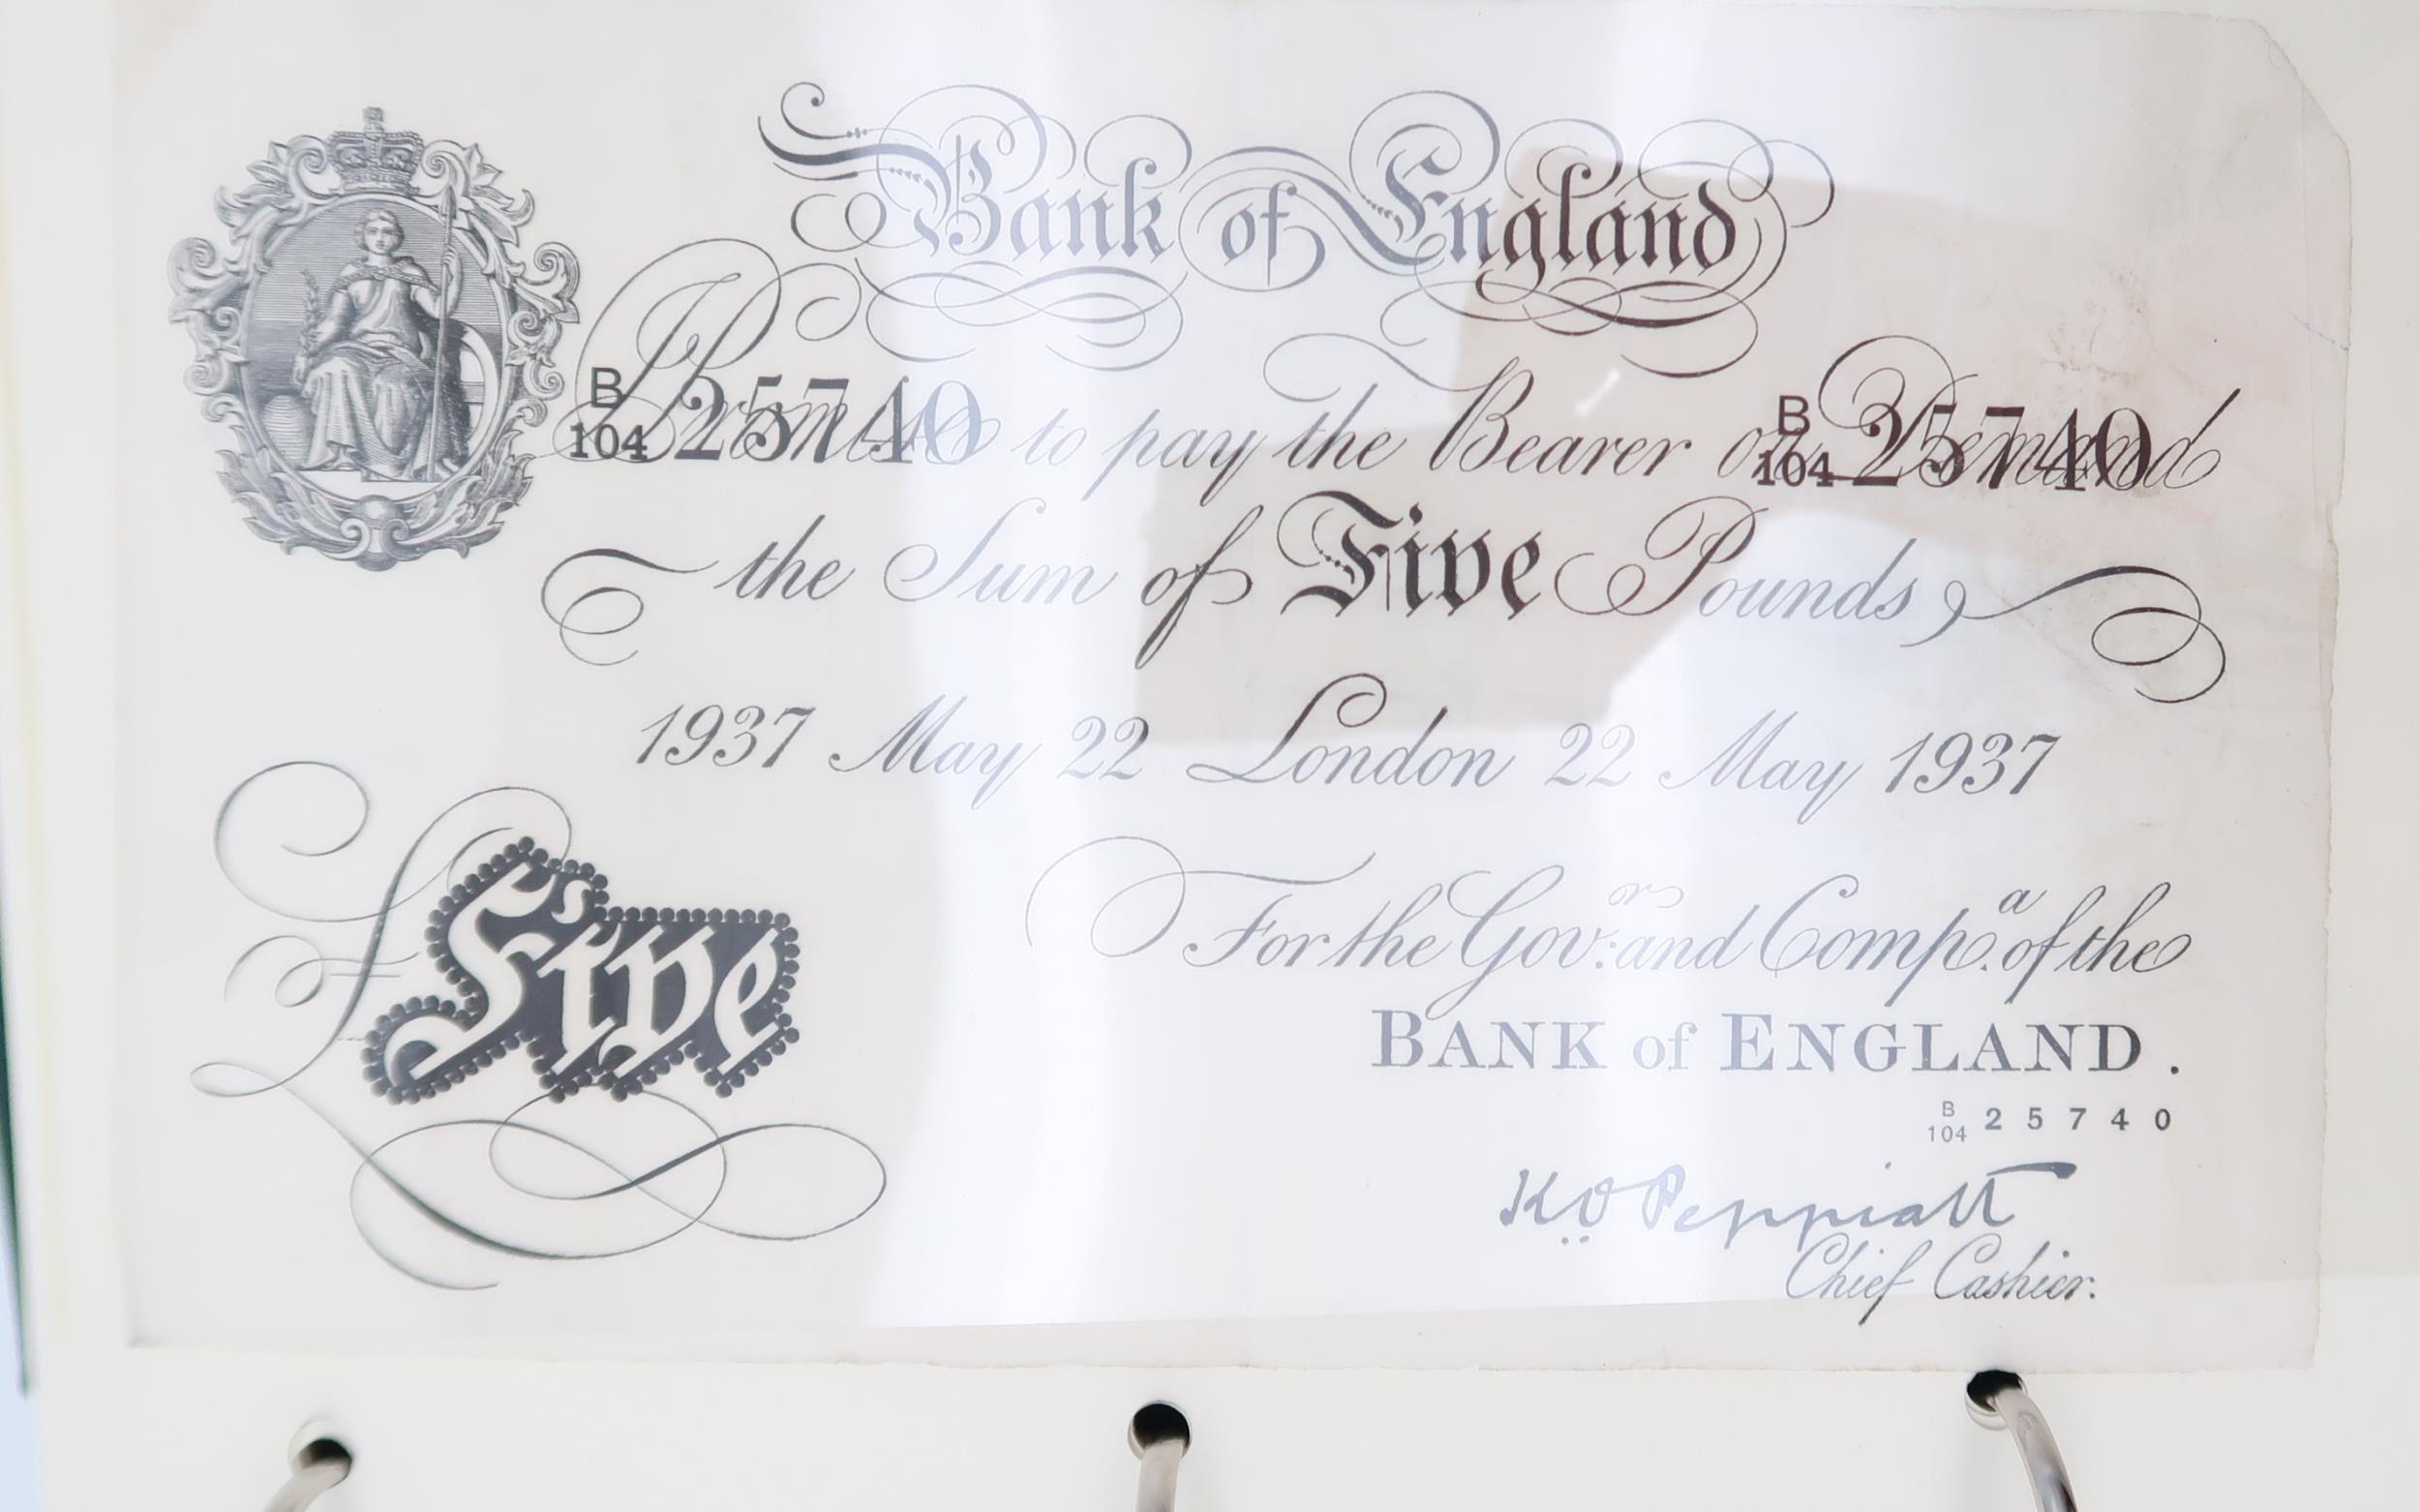 Bank of England
B
104 25740 Promise to pay the Bearer on Demand B
104 25740
the Sum of Five Pounds,
1937 May 22 London 22 May 1937
For the Gov:ors and Comp.a of the
£Five
BANK of ENGLAND.
B
104 25740
K O Peppiatt
Chief Cashier.